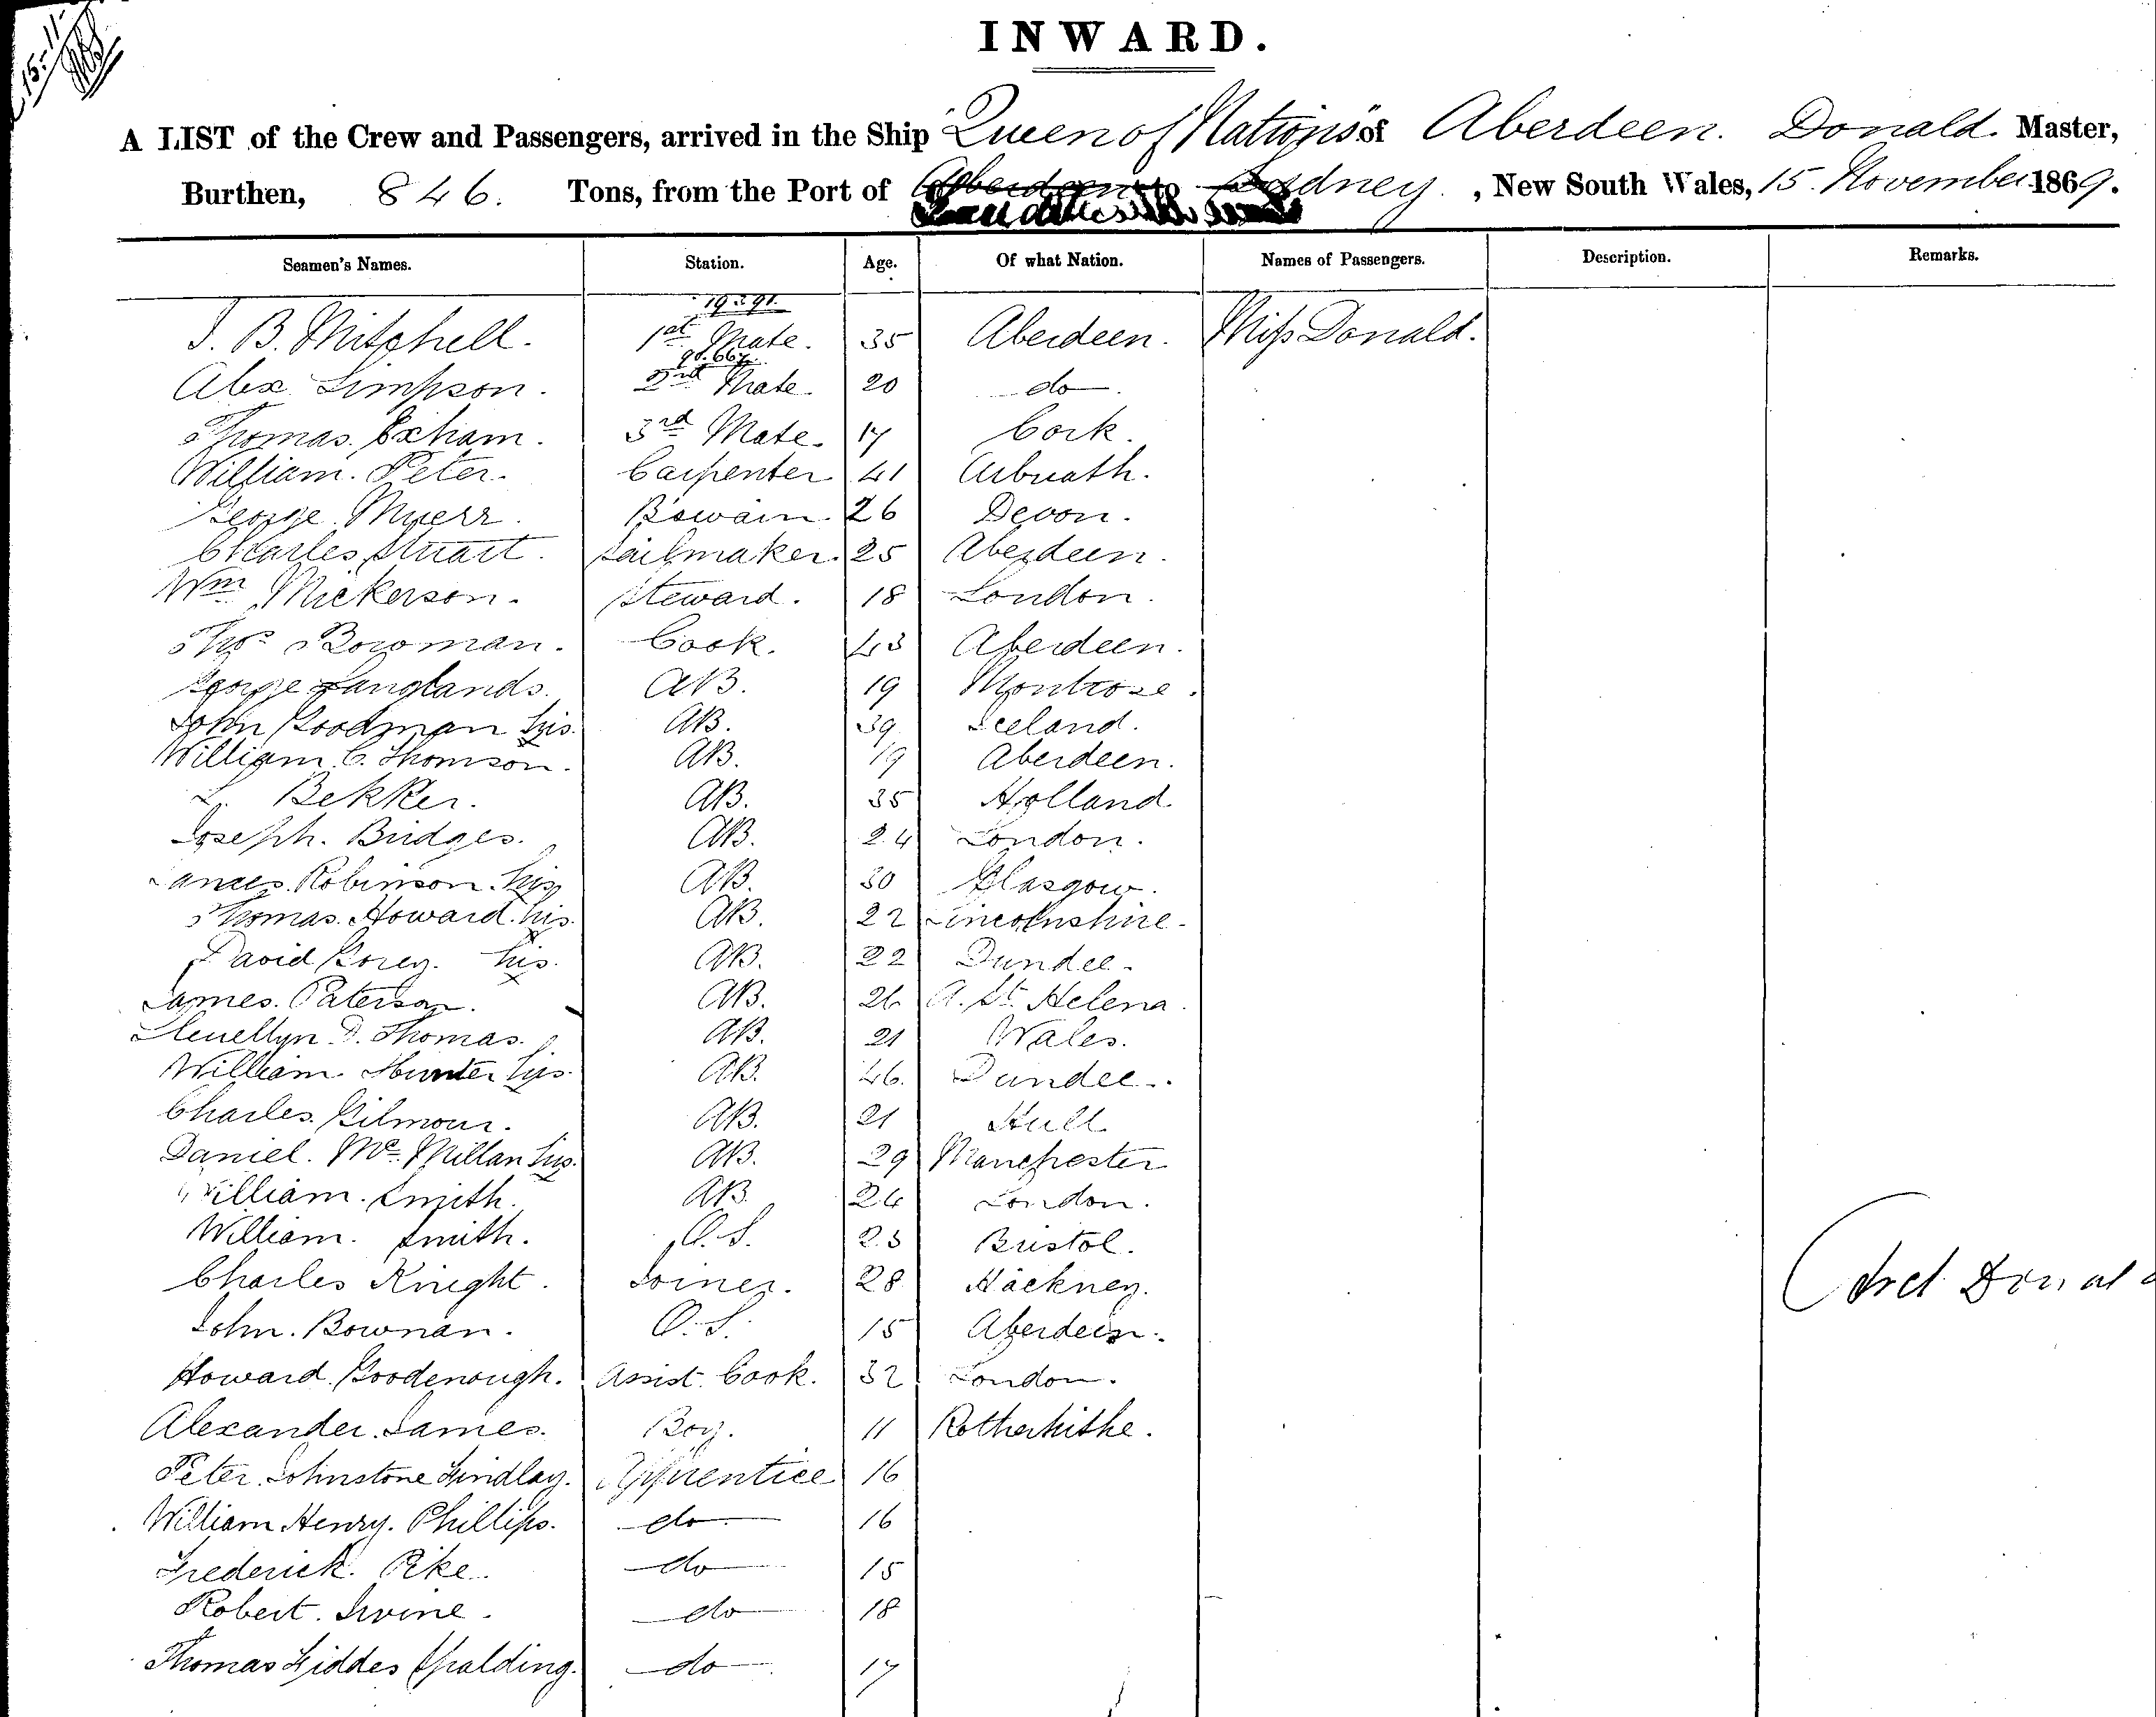 INWARD.
A LIST of the Crew and Passengers, arrived in the Ship "Queen of Nations" of Aberdeen. Donald. Master,
Burthen, 846. Tons, from the Port of Sydney, New South Wales, 15 November 1869.
Seamen's Names. Station. Age. Of what Nation. Names of Passengers. Description. Remarks.
J. B. Mitchell. 1st Mate. 35 Aberdeen. Miss Donald.
Alex Simpson. 2nd Mate. 20 do.
Thomas. Exham. 3rd Mate. 17 Cork.
William. Peter. Carpenter 41 Arbroath.
George. Myerr. Boswain. 26 Devon.
Charles Stuart. Sailmaker. 25 Aberdeen.
Wm Mickerson. Steward. 18 London.
Thos Bowman. Cook. 43 Aberdeen.
George Langlands. AB. 19 Montrose.
John Goodman his AB. 39 Iceland.
William C. Thomson. AB. 19 Aberdeen.
L. Bekker. AB. 35 Holland.
Joseph. Bridges. AB. 24 London.
James Robinson. his AB. 30 Glasgow.
Thomas. Howard. his AB. 22 Lincolnshire.
David his AB. 22 Dundee.
James. Paterson. AB. 26 St. Helena.
Llewellyn D. Thomas. AB. 21 Wales.
William Hunter his AB. 46. Dundee.
Charles. Gilmour. AB. 21 Hull
Daniel. Mc. Millan his AB. 29 Manchester
William. Smith. AB 24 London.
William. Smith. O.S. 23 Bristol.
Charles Knight. Joiner. 28 Hackney.
John. Bowman. O.S. 15 Aberdeen.
Howard. Goodenough. Assist. Cook. 32 London.
Alexander. James. Boy. 11 Rotherhithe.
Peter. Johnstone Findlay. Apprentice 16
William Henry. Phillips. do 16
Frederick. Pike. do 15
Robert. Irvine. do 18
Thomas Giddes Spalding. do 17
Donald